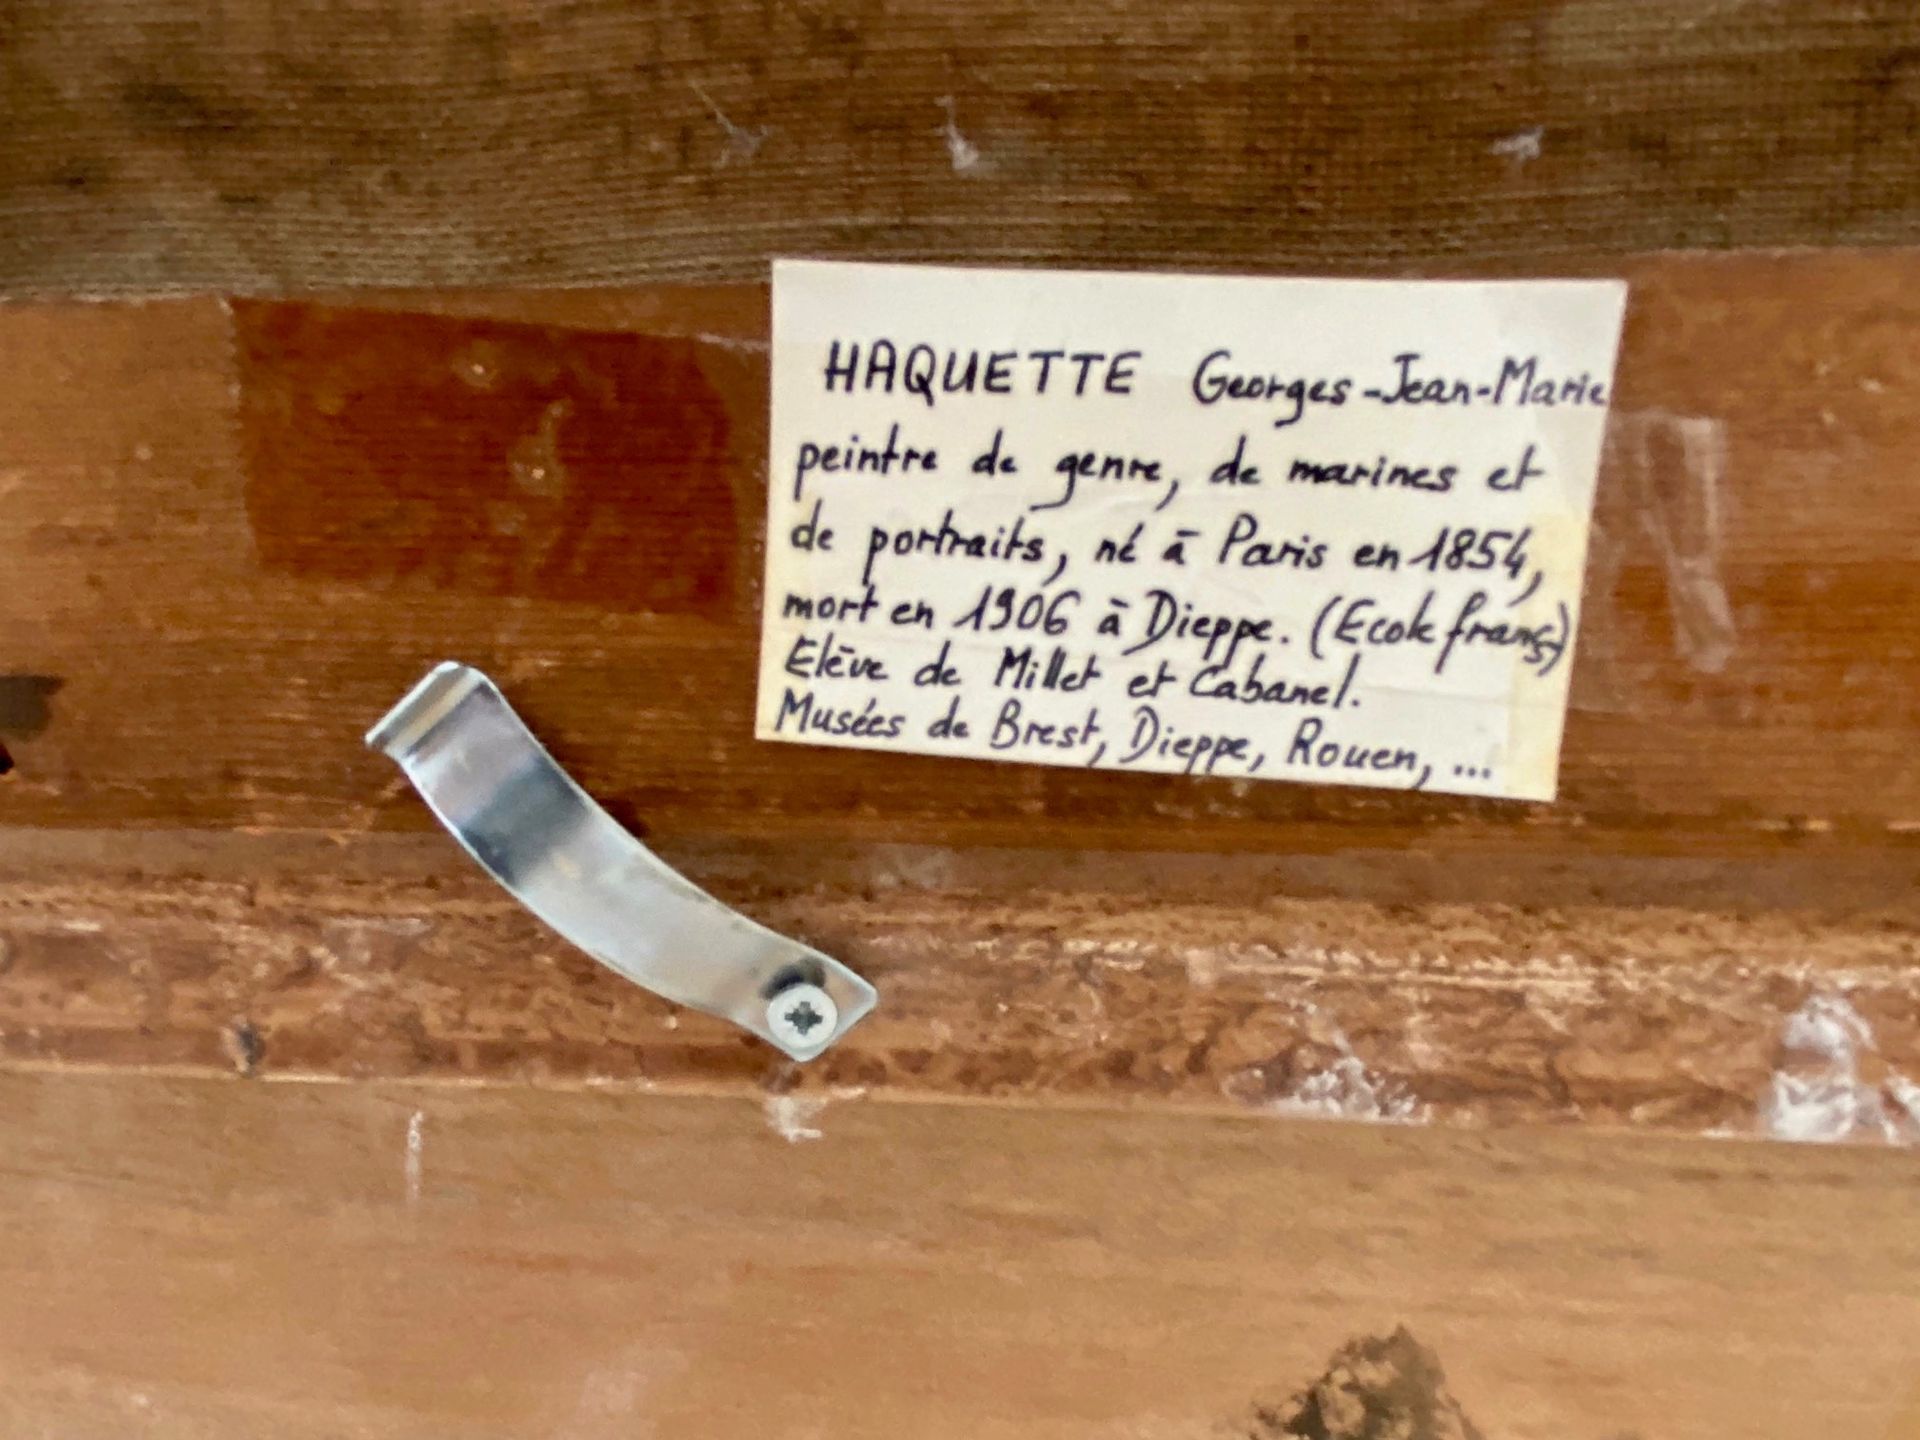 HAQUETTE Georges-Jean-Marie
peintre de genre, de marines et
de portraits, né à Paris en 1854,
mort en 1906 à Dieppe. (Ecole franç)
Elève de Millet et Cabanel.
Musées de Brest, Dieppe, Rouen, ...